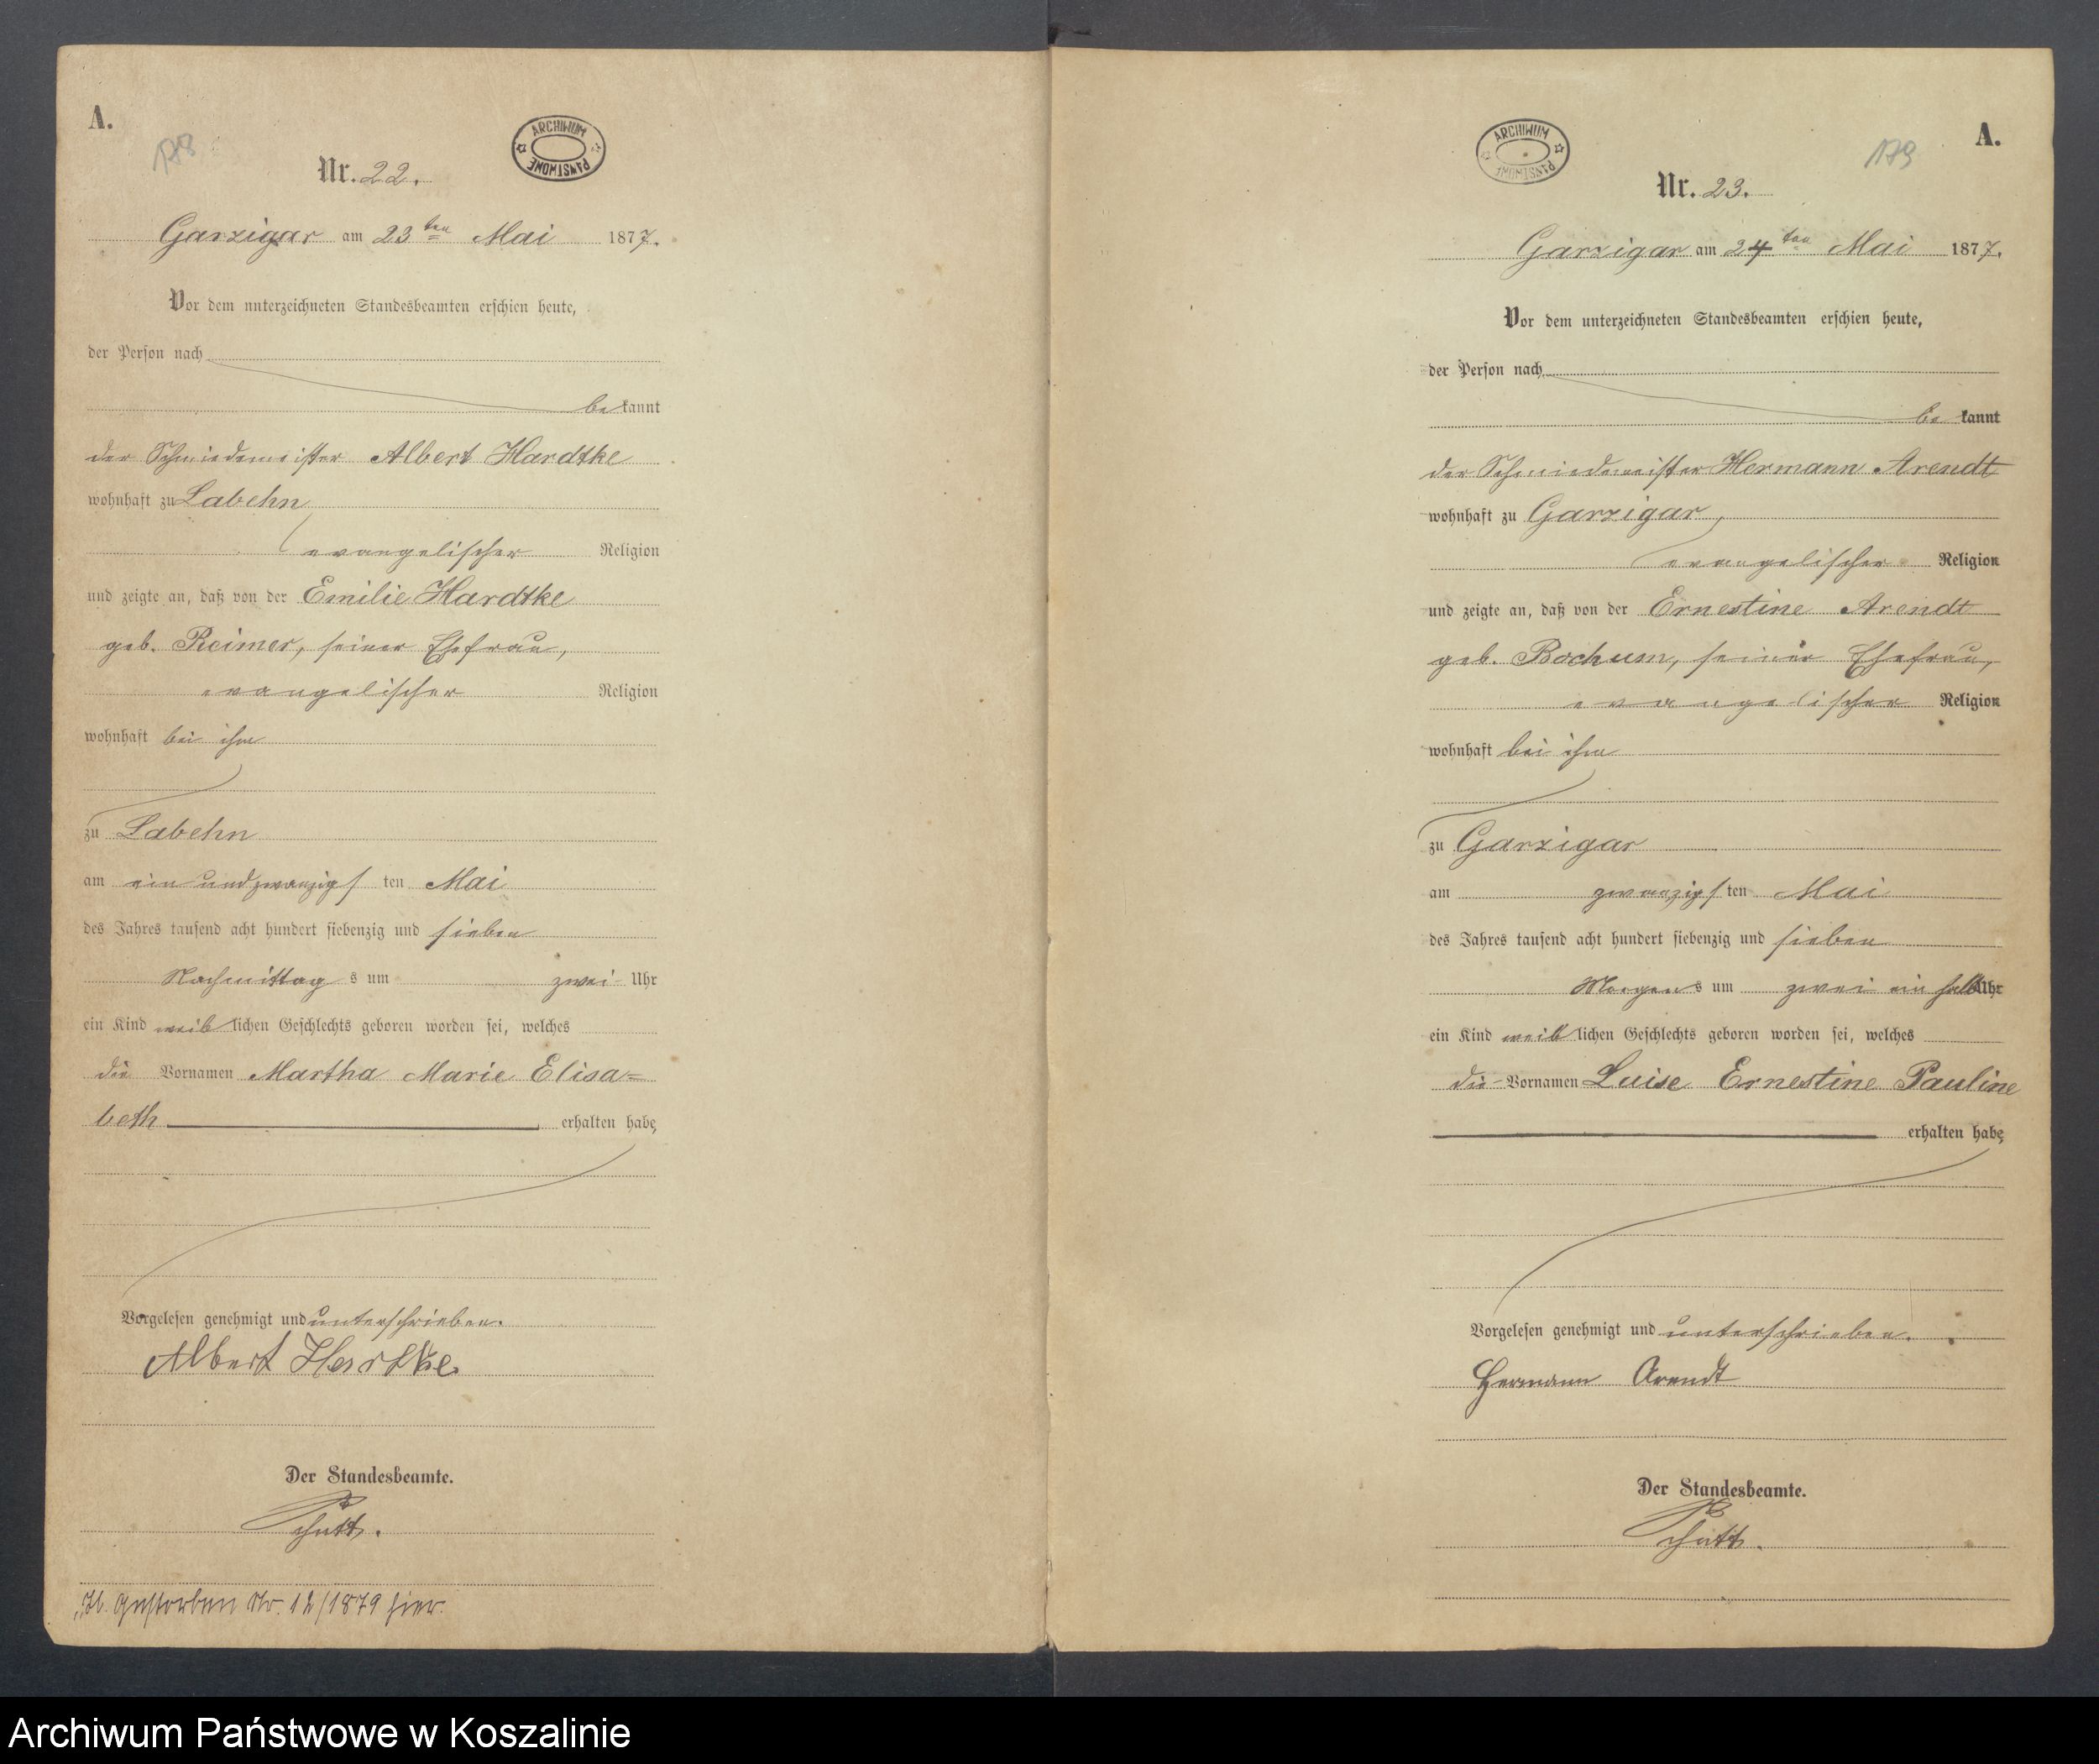 A.
178
ARCHIWUM PAŃSTWOWE
Nr. 22.
Garzigar am 23ten Mai 1877.
Vor dem unterzeichneten Standesbeamten erschien heute,
der Person nach
bekannt
der Schmiedemeister Albert Hardtke
wohnhaft zu Labehn
evangelischer Religion
und zeigte an, daß von der Emilie Hardtke
geb. Reimer, seiner Ehefrau,
evangelischer Religion
wohnhaft bei ihm
zu Labehn
am ein und zwanzigsten Mai
des Jahres tausend acht hundert siebenzig und sieben
Nachmittags um zwei Uhr
ein Kind weiblichen Geschlechts geboren worden sei, welches
die Vornamen Martha Marie Elisa=
beth erhalten habe,
Vorgelesen genehmigt und unterschrieben.
Albert Hardtke
Der Standesbeamte.
Schütt.
gestorben Nr. 12/1879 hier.
A.
179
ARCHIWUM PAŃSTWOWE
Nr. 23.
Garzigar am 24ten Mai 1877.
Vor dem unterzeichneten Standesbeamten erschien heute,
der Person nach
bekannt
der Schmiedemeister Hermann Arendt
wohnhaft zu Garzigar,
evangelischer Religion
und zeigte an, daß von der Ernestine Arendt
geb. Bochum, seiner Ehefrau,
evangelischer Religion
wohnhaft bei ihm
zu Garzigar
am zwanzigsten Mai
des Jahres tausend acht hundert siebenzig und sieben
Morgens um zwei ein halb Uhr
ein Kind weiblichen Geschlechts geboren worden sei, welches
die Vornamen Luise Ernestine Pauline
erhalten habe,
Vorgelesen genehmigt und unterschrieben.
Hermann Arendt
Der Standesbeamte.
Schütt.
Archiwum Państwowe w Koszalinie